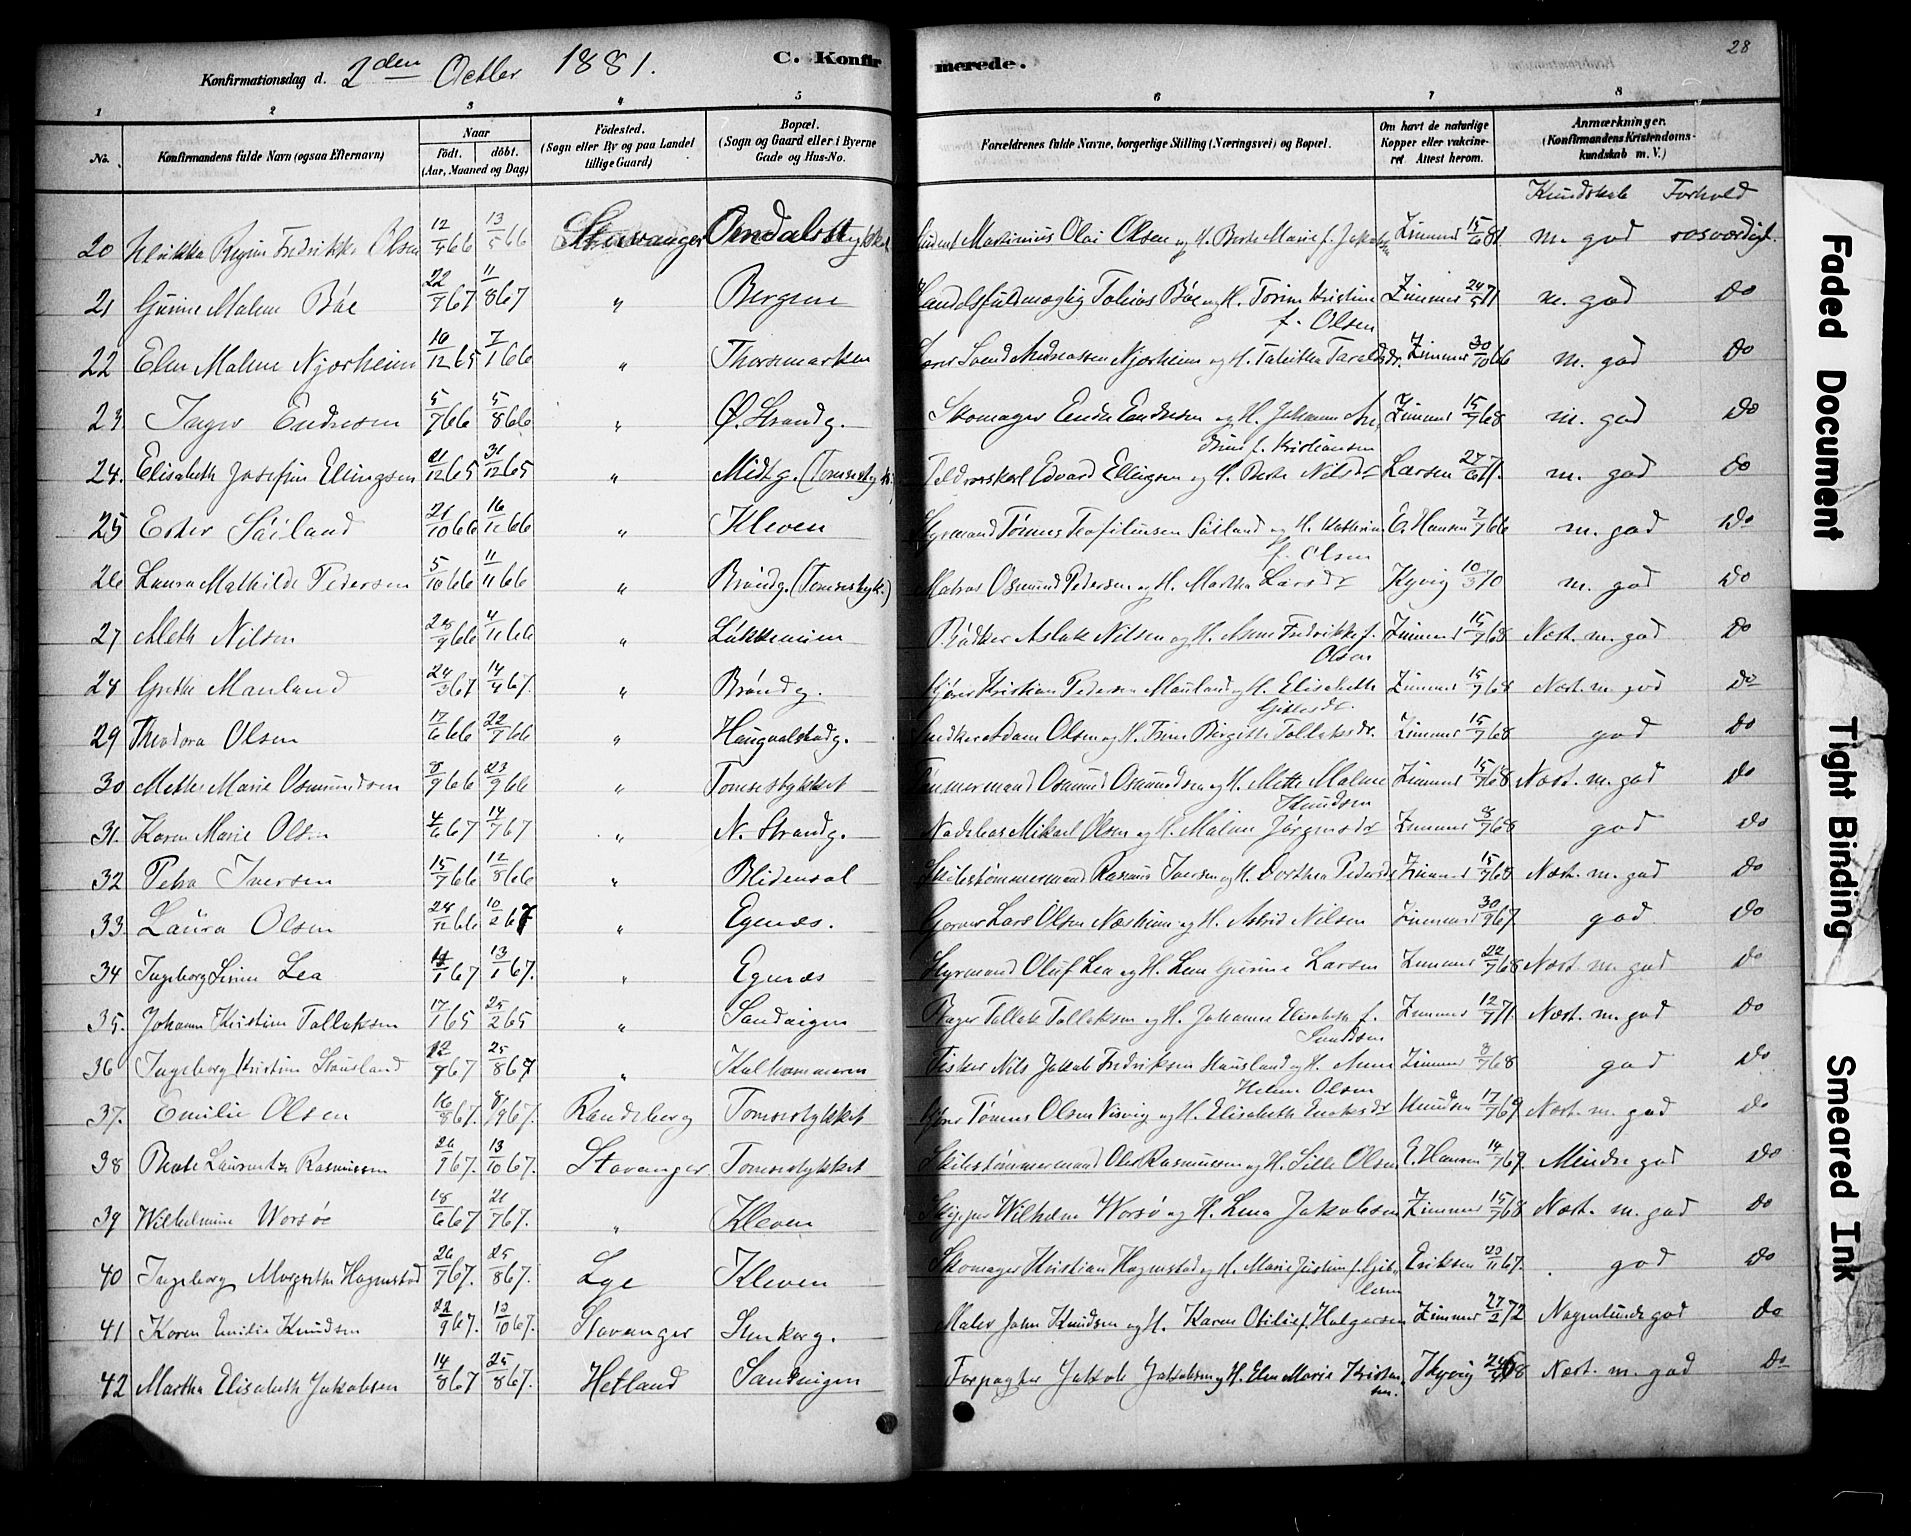 28
Konfirmationsdag d. 2den Octber 1881. C. Konfirmerede.
1 2 3 4 5 6 7 8
No. Konfirmandens fulde Navn (ogsaa Efternavn) Naar Födt. döbt. (Aar, Maaned og Dag) Födested. (Sogn eller By og paa Landet tillige Gaard) Bopæl. (Sogn og Gaard eller i Byerne Gade og Hus-No. Forældrenes fulde Navne, borgerlige Stilling (Næringsvei) og Bopæl. Om havt de naturlige Kopper eller vakcineret Attest herom. Anmærkninger. (Konfirmandens Kristendoms-kundskab m. V.)
Kundskab Forhold
20 Regine Fredrikke Olsen 12/4 66 13/5 66 Stavanger Martinius Olai Olsen og H. Berte Marie f. Jakobsen Zimmer 15/6 81 m. god rosværdigt.
21 Gurine Malene Böe 22/7 67 11/8 67 " Bergene Handelsfuldmægtig Tobias Böe og H. Torine Kristine f. Olsen Zimmer 24/5 71 m. god Do
22 Elen Malene Njorheim 16/12 65 7/1 66 " Svend Andreassen Njorheim og H. Tabitha Taraldsdr. Zimmer 30/10 66 m. god Do
23 Inger Endresen 5/7 66 5/8 66 " Ø. Strandg. Skomager Endre Endresen og H. Johanne f. Kristiansen Zimmer 15/7 68 m. god Do
24. Elisabeth Josefine Ellingsen 21/12 65 31/12 65 " Midtg. Edvard Ellingsen og H. Berte Nilsdr Larsen 27/6 71. m. god Do
25 Ester Söiland 21/10 66 16/11 66 " Kleven Styrmand Tönnes Teofiliusen Söiland og H. Kathrine f. Olsen E. Hansen 7/7 66 m. god Do
26 Laura Mathilde Pedersen 5/10 66 11/11 66 " Bröndg. Matros Osmund Pedersen og H. Martha Larsdr Kyvig 10/3 70 m. god Do
27 Meth Nilsen 28/9 66 4/11 66 " Lökkeveien Bödker Aslak Nilsen og H. Anne Fredrikke f. Olsen Zimmer 15/7 68 Næst. m. god Do
28 Grethe Mauland 24/3 67 14/4 67. " Bröndg. Kristian Pedersen Mauland og H. Elisabeth Zimmer 15/7 68 Næst. m. god Do
29 Theodora Olsen 17/6 66 22/7 66 " Haugvaldstadg. Snedker Adam Olsen og H. Trine Birgitte Tollaksdr. Zimmer 15/7 68 god Do
30 Mette Marie Osmundsen 8/9 66 23/9 66 " Tomsestykket Tömmermand Osmund Osmundsen og H. Mette Malene Knudsen Zimmer 15/7 68 Næst. m. god Do
31. Karen Marie Olsen 4/6 67 14/7 67 " N. Strandg. Mikael Olsen og H. Malene Jörgensdr Zimmer 8/7 68 god Do
32 Petra Iversen 15/7 66 12/8 66 " Blidensol Skibstömmermand Rasmus Iversen og H. Dorthea Pedersdr Zimmer 15/7 68 Næst. m. god Do
33. Laura Olsen 24/12 66 10/2 67 " Egenæs. Garver Lars Olsen Næsheim og H. Astrid Nilsen Zimmer 30/9 67. god Do
34 Ingeborg Sirine Lea 4/1 67 13/1 67. " Egenæs Styrmand Oluf Lea og H. Lene Gurine Larsen Zimmer 22/7 68 Næst. m. god Do
35. Johanne Kristine Tollaksen 17/1 65 25/2 65 " Sandvigen Bager Tollak Tollaksen og H. Johanne Elisabeth f. Zimmer 12/7 71 Næst. m. god Do
36 Ingeborg Kristine Stausland 12/7 67 25/8 67 " Kalhammeren Fisker Nils Jakob Fredriksen Stausland og H. Anne Helene Olsen Zimmer 8/7 68 god Do
37. Emilie Olsen 16/8 67. 8/9 67. Randeberg Tomsestykket Tönnes Olsen Visvig og H. Elisabeth Knudsen 17/7 69 Næst. m. god Do
38 Berte Lauentze Rasmussen 20/9 67. 13/10 67. Stavanger Tomsestykket Skibstömmermand Ole Rasmussen og H. Sille Olsen E. Hansen 14/7 69. Mindre god Do
39 Wilhelmine Worsöe 18/6 67 21/7 67. " Kleven Skipper Wilhelm Worsö og H. Lena Jakobsen Zimmer 15/7 68 Næst. m. god Do
40 Ingeborg Margrethe Hognestad 20/7 67. 25/8 67. Lye Kleven Skomager Kristian Hognestad og H. Marie Justine f. Eriksen 20/11 67. god Do
41 Karen Emilie Knudsen 22/9 67. 13/10 67. Stavanger Stenkarg. Maler John Knudsen og H. Karen Otilie f. Holgersen Zimmer 27/2 72 Nogenlunde god Do
42 Martha Elisabeth Jakobsen 14/8 67 25/8 67. Hetland Sandvigen Forpagter Jakob Jakobsen og H. Elen Marie Kristensen. Kyvig 68 Næst. m. god Do
Faded Document
Tight Binding
Smeared Ink